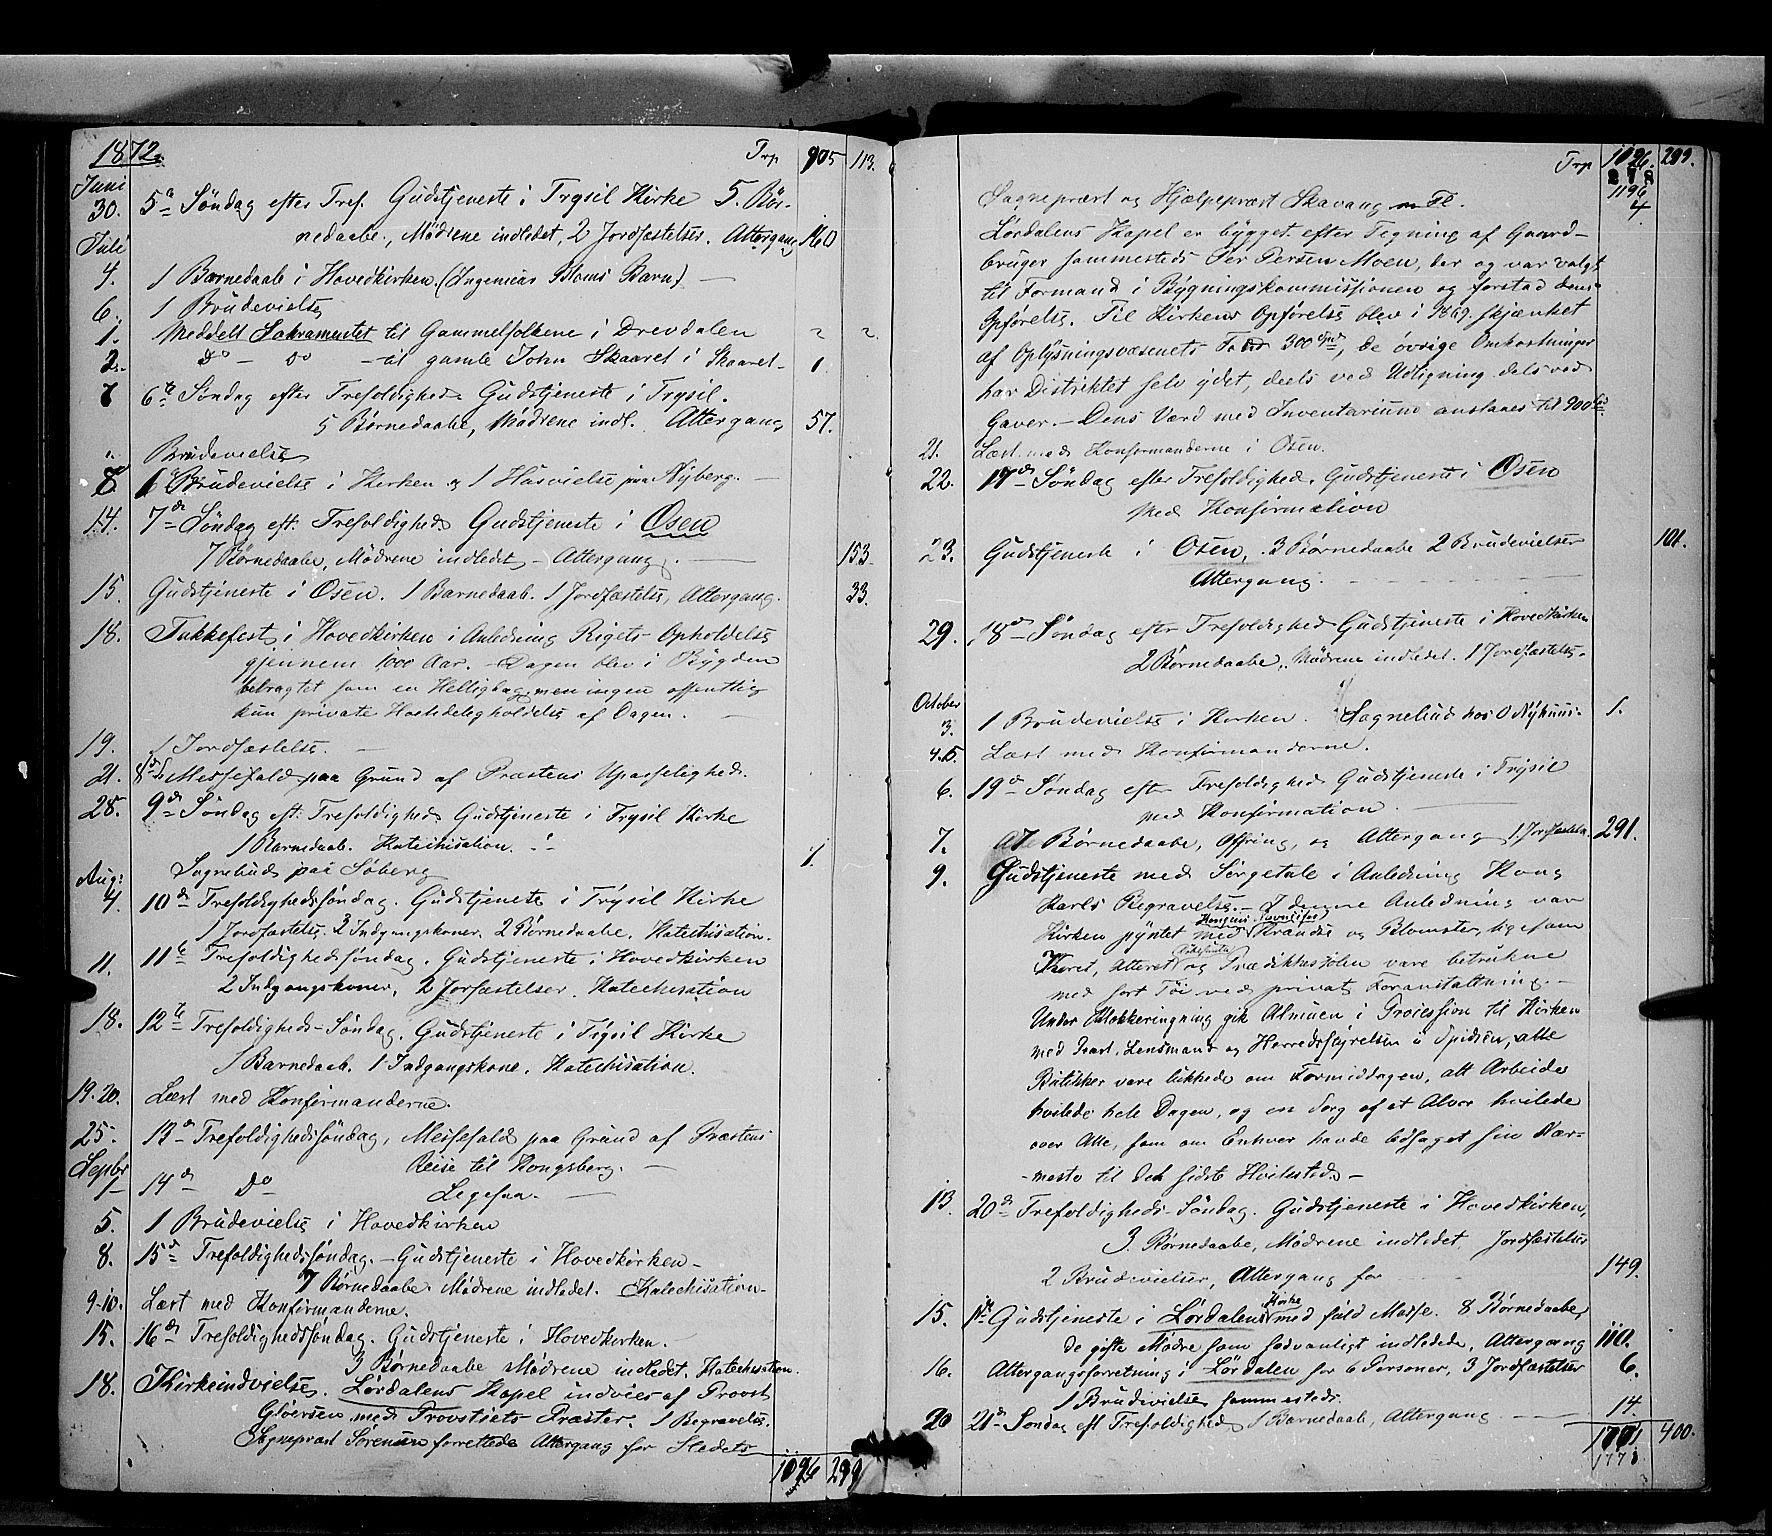 1872. Trp 905 113.
Juni
30. 5te Søndag efter Tref. Gudstjeneste i Trysil Kirke 5. Bør-
nedaabe, Mødrene indledet, 2 Jordfæstelser. Altergang 160
Juli
4. 1 Barnedaab i Hovedkirken. (Ingeniør Bloms Barn) —
6. 1 Brudevielse
1. Meddelt Sakramentet til Gammelfolkene i Drevdalen 2 2.
2. Do — Do — til gamle John Skaaret i Skaaret. 1.
7 6te Søndag efter Trefoldighed Gudstjeneste i Trysil.
5 Børnedaabe, Mødrene indl. Altergang 57.
" Brudevielse
8. 1 Brudevielse i Kirken og 1 Husvielse paa Nyberg. —
14. 7de Søndag eft. Trefoldighed Gudstjeneste i Osen
7 Børnedaabe, Mødrene indledet — Altergang. — 153.
15. Gudstjeneste i Osen. 1 Barnedaab. 1 Jordfæstelse, Altergang. 33.
18. Takkefest i Hovedkirken i Anledning Rigets Opholdelse
gjennem 1000 Aar. — Dagen blev i Bygden
betragtet som en Helligdag, men ingen offentlig
kun private Høitideligholdelse af Dagen. —
19. 1 Jordfæstelse. —
21. 8de S Messefald paa Grund af Præstens Upasselighed.
28. 9de Søndag eft. Trefoldighed Gudstjeneste i Trysil Kirke
1 Barnedaab. Katechisation.
Sognebud paa Søberg 1.
Aug:
4. 10de Trefoldighedssøndag. Gudstjeneste i Trysil Kirke
1 Jordfæstelse. 3 Indgangskoner. 2 Børnedaabe. Katechisation.
11. 11te Trefoldighedssøndag. Gudstjeneste i Hovedkirken
2 Indgangskoner, 2 Jorfæstelser. Katechisation
18. 12te Trefoldigheds-Søndag. Gudstjeneste i Trysil Kirke
1 Barnedaab. 1 Indgangskone. Katechisation.
19.20. Læst med Konfirmanderne.
25. 13de Trefoldighedssøndag, Messefald paa Grund af Præstens
Reise til Kongsberg. —
Septbr
1 14de Do Ligesaa. —
5. 1 Brudevielse i Hovedkirken
8. 15de Trefoldighedssøndag. — Gudstjeneste i Hovedkirken —
7 Børnedaabe. Mødrene indledet. Katechisation —
9-10. Læst med Konfirmanderne.
15. 16de Trefoldighedssøndag. Gudstjeneste i Hovedkirken.
3 Børnedaabe Mødrene indledet. Katechisation.
18. Kirkeindvielse. Lørdalens Kapel indvies af Provst
Gløersen med Provstiets Præster. 1 Begravelse.
Sognepræst Sørensen forrettede Altergang for Stedets
1096 299
Trp 1096. 299.
278
1196
4
Sognepræst og Hjælpepræst Skavang m Fl.
Lørdalens Kapel er bygget efter Tegning af Gaard-
bruger sammesteds Per Persen Moen, der og var valgt
til Formand i Bygningskommissionen og forstod dens
Opførelse. Til Kirkens Opførelse blev i 1869 skjænket
af Oplysningsvæsenets Fond 300 Spd, de øvrige Omkostninger
har Distriktet selv ydet, deels ved Udligning dels ved
Gaver. — Dens Værd med Inventarium anslaaes til 900 Spd
21. Læst med Konfirmanderne i Osen.
22. 17de Søndag efter Trefoldighed. Gudstjeneste i Osen
med Konfirmation
23. Gudstjeneste i Osen. 3 Børnedaabe 2 Brudevielser 101.
Altergang.
29. 18de Søndag efter Trefoldighed Gudstjeneste i Hovedkirken
2 Børnedaabe, Mødrene indledet. 1 Jordfæstelse.
October
3. 1 Brudevielse i Kirken. Sognebud hos O Nyhuus. 1.
4.5. Læst med Konfirmanderne.
6. 19de Søndag efter Trefoldighed Gudstjeneste i Trysil
med Konfirmation. —
7. Børnedaabe, Offring, og Altergang 1 Jordfæstelse. 291.
9. Gudstjeneste med Sørgetale i Anledning Kong
Karls Begravelse. — I denne Anledning var
Kongens Navnsifer,
Kirken pyntet med Krandse og Blomster, ligesom
Koret, Alteret og Prædikestolen vare betrukne
med sort Tøi ved privat Foranstaltning. —
Under Klokkeringning gik Almuen i Procession til Kirken
med Præst, Lensmand og Herredsstyrelsen i Spidsen, alle
Butikker vare lukkede om Formiddagen, alt Arbeide
hvilede hele Dagen, og en Sorg af et Alvor hvilede
over Alle, som om Enhver havde ledsaget sin Nær-
meste til det sidste Hvilested. —
13. 20de Trefoldigheds-Søndag. Gudstjeneste i Hovedkirken,
3 Børnedaabe, Mødrene indledet, Jordfæstelser
2 Brudevielser, Altergang for 149.
Kirke
15. 1ste Gudstjeneste i Lørdalens med fuld Messe. 8 Børnedaabe,
de gifte Mødre som sedvanligt indledede, Altergang 110.
16. Altergangsforretning i Lørdalen for 6 Personer, 3 Jordfæstelser 6.
1 Brudevielse sammesteds.
20 21de Søndag eft Trefoldighed 1 Barnedaab, Altergang — 14.
1771 400.
1778